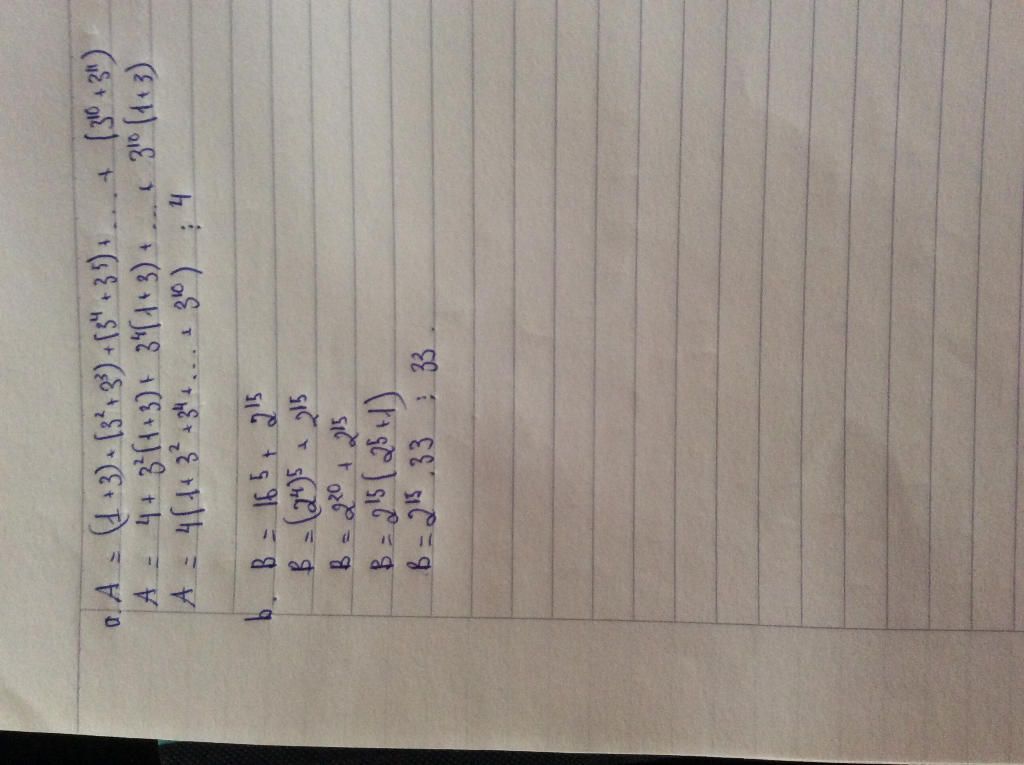 a. A = (1+3) + (3² + 3³) + (3⁴ + 3⁵) + .... + (3¹⁰ + 3¹¹)
A = 4 + 3²(1+3) + 3⁴(1+3) + .... + 3¹⁰(1+3)
A = 4(1 + 3² + 3⁴ + .... + 3¹⁰) ⋮ 4
b. B = 16⁵ + 2¹⁵
B = (2⁴)⁵ + 2¹⁵
B = 2²⁰ + 2¹⁵
B = 2¹⁵(2⁵ + 1)
B = 2¹⁵ . 33 ⋮ 33.